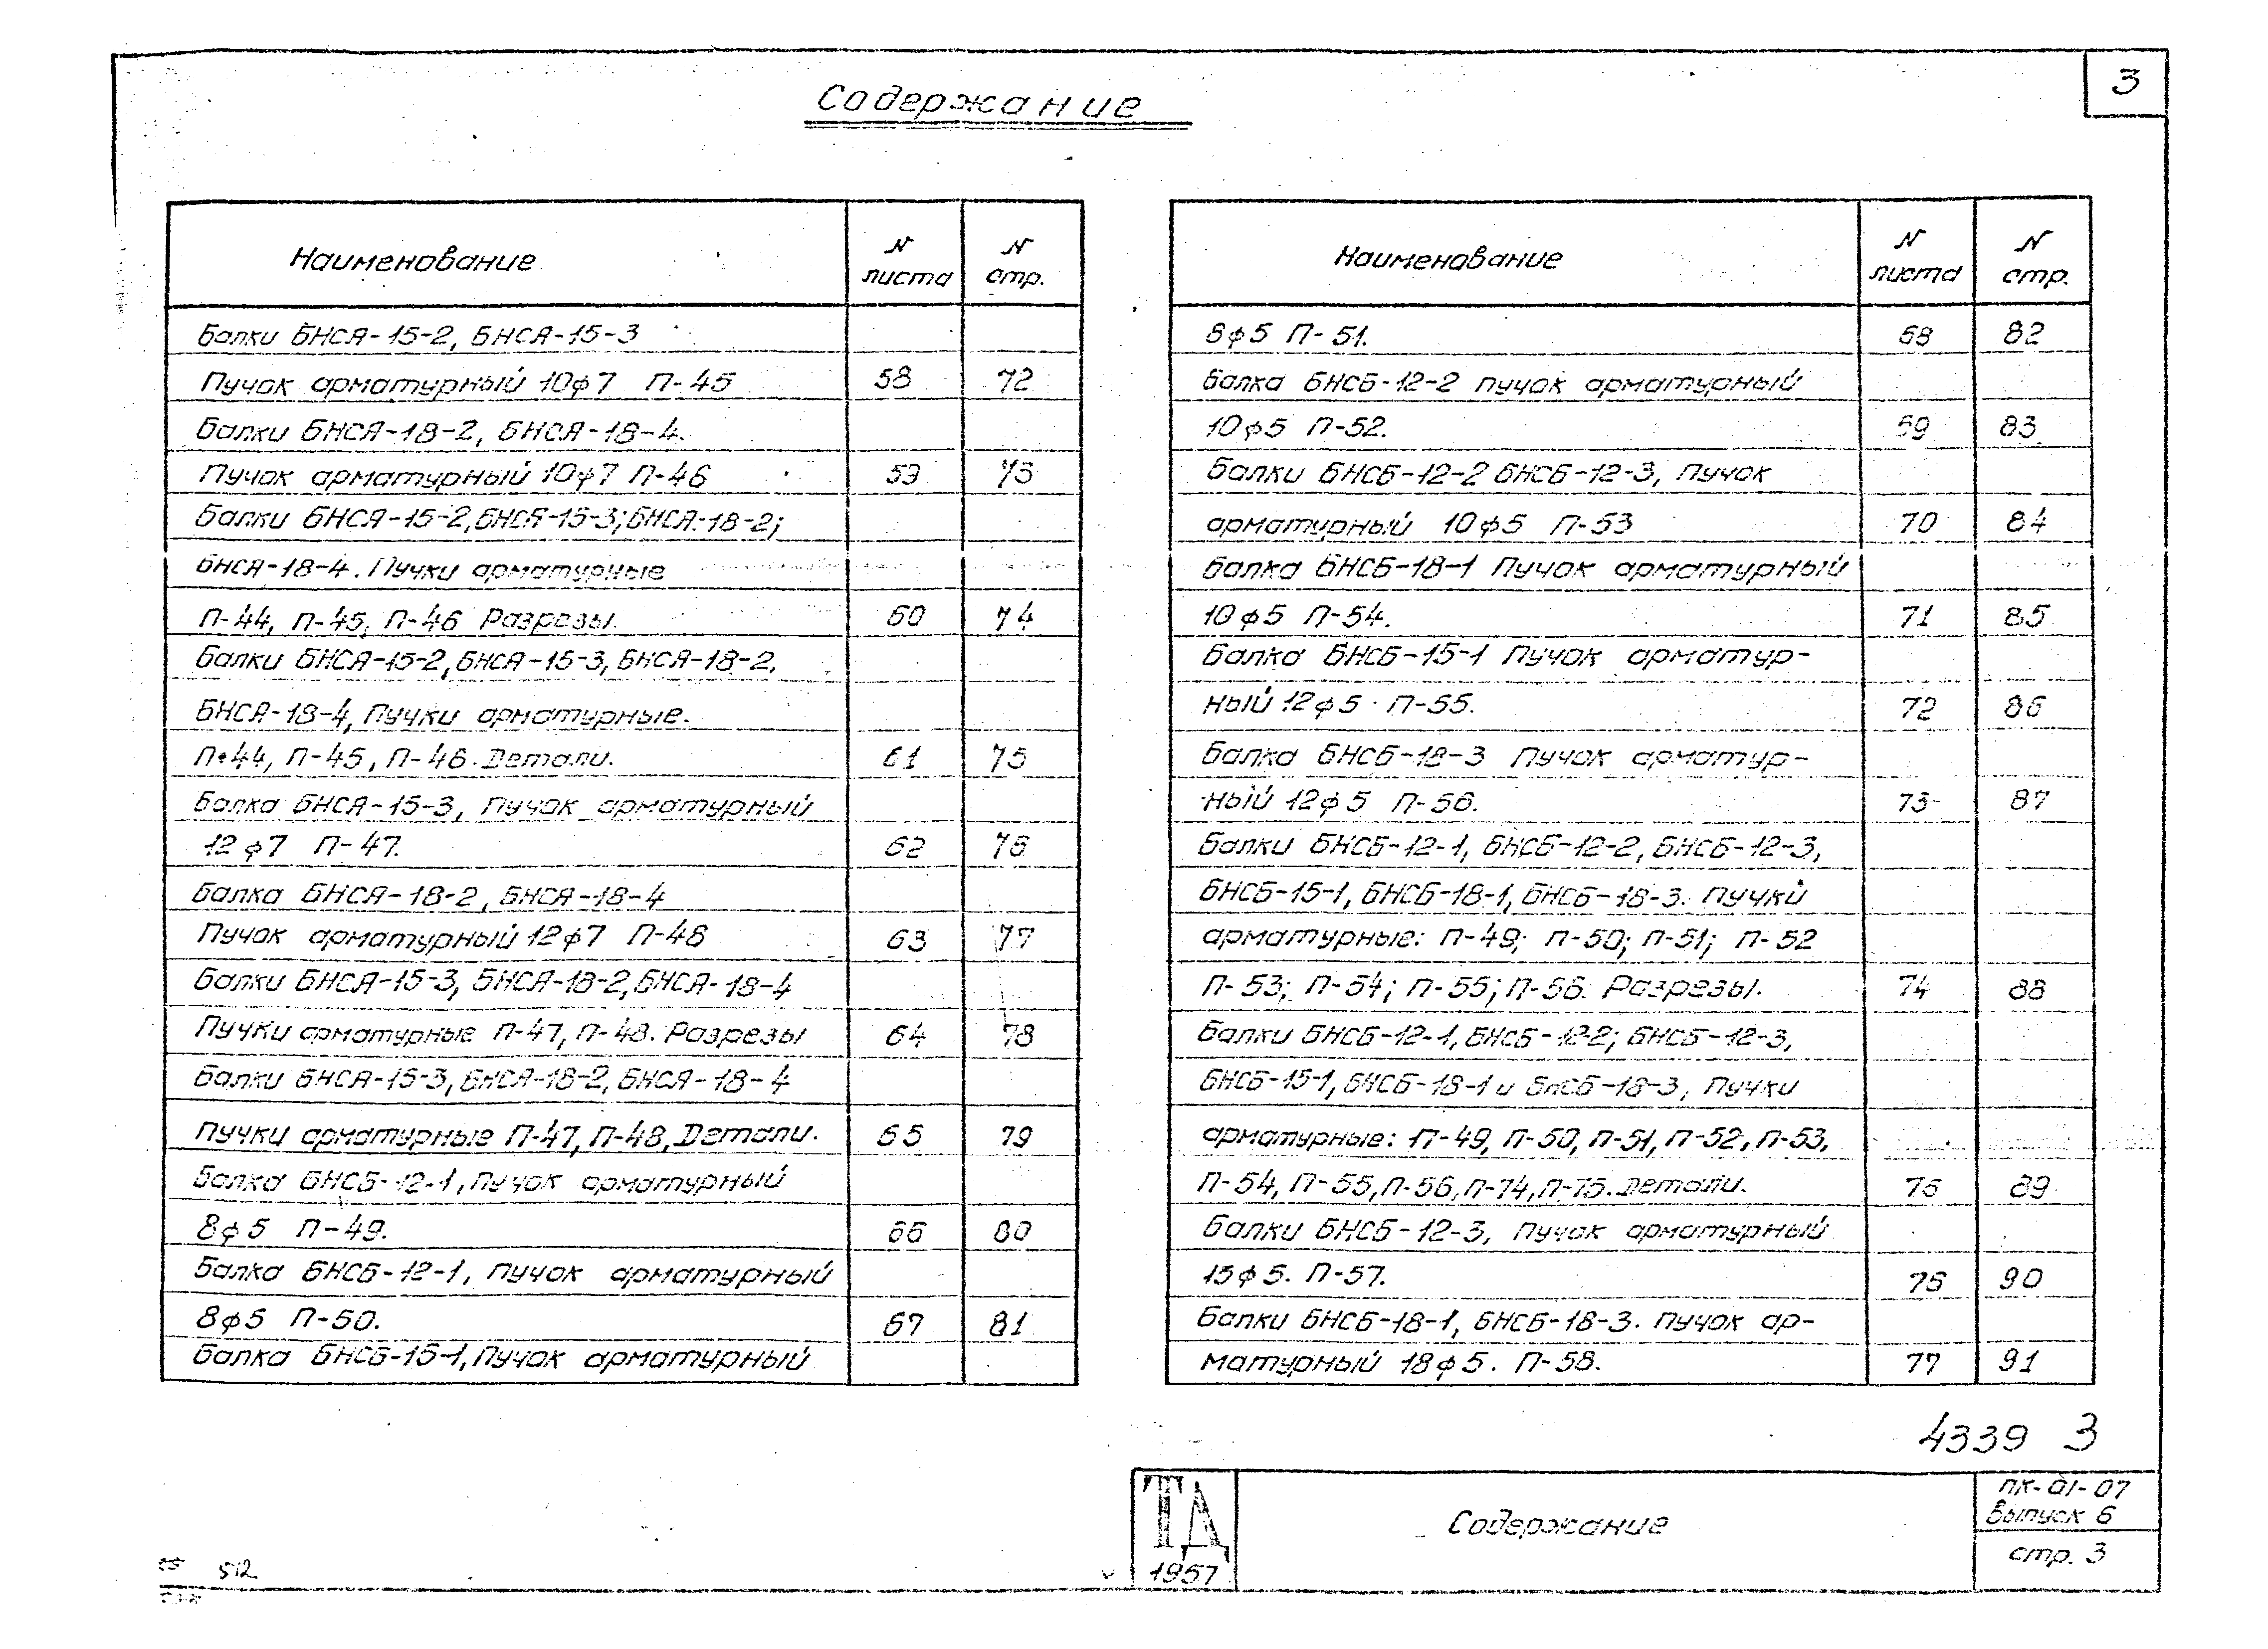 3
Содержание
Наименование N листа N стр.
Балки БНСЯ-15-2, БНСЯ-15-3
Пучок арматурный 10ф7 П-45 58 72
Балки БНСЯ-18-2, БНСЯ-18-4.
Пучок арматурный 10ф7 П-46 59 73
Балки БНСЯ-15-2, БНСЯ-15-3; БНСЯ-18-2;
БНСЯ-18-4. Пучки арматурные
П-44, П-45, П-46 Разрезы. 60 74
Балки БНСЯ-15-2, БНСЯ-15-3, БНСЯ-18-2.
БНСЯ-18-4, Пучки арматурные.
П-44, П-45, П-46. Детали. 61 75
Балка БНСЯ-15-3, Пучок арматурный
12ф7 П-47. 62 76
Балка БНСЯ-18-2, БНСЯ-18-4
Пучок арматурный 12ф7 П-48 63 77
Балки БНСЯ-15-3, БНСЯ-18-2, БНСЯ-18-4
Пучки арматурные П-47, П-48. Разрезы 64 78
Балки БНСЯ-15-3, БНСЯ-18-2, БНСЯ-18-4
Пучки арматурные П-47, П-48, Детали. 65 79
Балка БНСБ-12-1, Пучок арматурный
8ф5 П-49. 66 80
Балка БНСБ-12-1, Пучок арматурный
8ф5 П-50. 67 81
Балка БНСБ-15-1, Пучок арматурный
Наименование N листа N стр.
8ф5 П-51. 68 82
Балка БНСБ-12-2 пучок арматурный
10ф5 П-52. 69 83
Балки БНСБ-12-2 БНСБ-12-3, Пучок
арматурный 10ф5 П-53 70 84
Балка БНСБ-18-1 Пучок арматурный
10ф5 П-54. 71 85
Балка БНСБ-15-1 Пучок арматур-
ный 12ф5 П-55. 72 86
Балка БНСБ-18-3 Пучок арматур-
ный 12ф5 П-56. 73 87
Балки БНСБ-12-1, БНСБ-12-2, БНСБ-12-3,
БНСБ-15-1, БНСБ-18-1, БНСБ-18-3. Пучки
арматурные: П-49; П-50; П-51; П-52
П-53; П-54; П-55; П-56. Разрезы. 74 88
Балки БНСБ-12-1, БНСБ-12-2; БНСБ-12-3,
БНСБ-15-1, БНСБ-18-1 и БнСБ-18-3, Пучки
арматурные: П-49, П-50, П-51, П-52, П-53,
П-54, П-55, П-56, П-74, П-75. Детали. 75 89
Балки БНСБ-12-3, Пучок арматурный
15ф5. П-57. 76 90
Балки БНСБ-18-1, БНСБ-18-3. Пучок ар-
матурный 18ф5. П-58. 77 91
4339 3
ТД
1957
Содержание
ПК-01-07
Выпуск 6
стр. 3
512